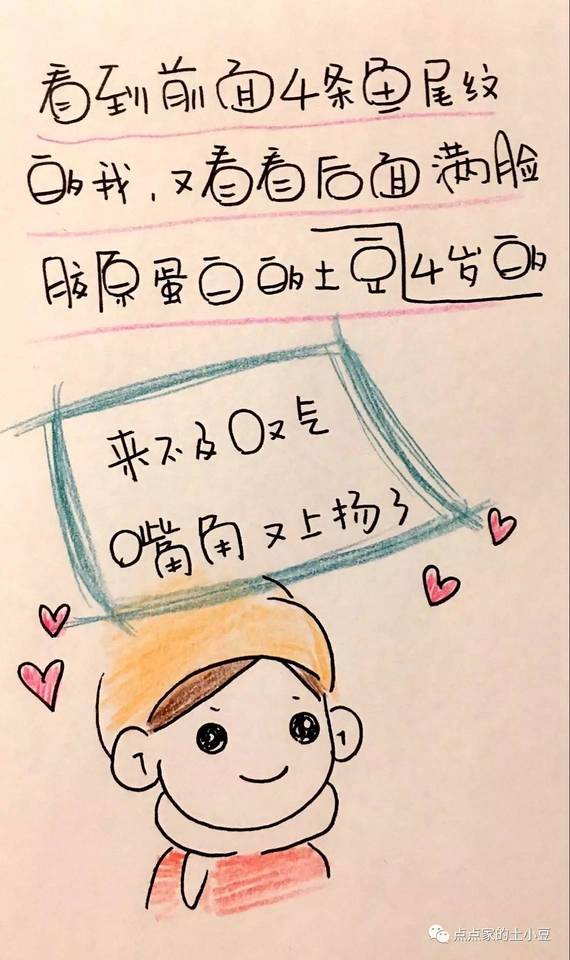 看到前面4条鱼尾纹
的我，又看看后面满脸
胶原蛋白的土豆4岁的
来不及叹气
嘴角又上扬了
点点家的土小豆